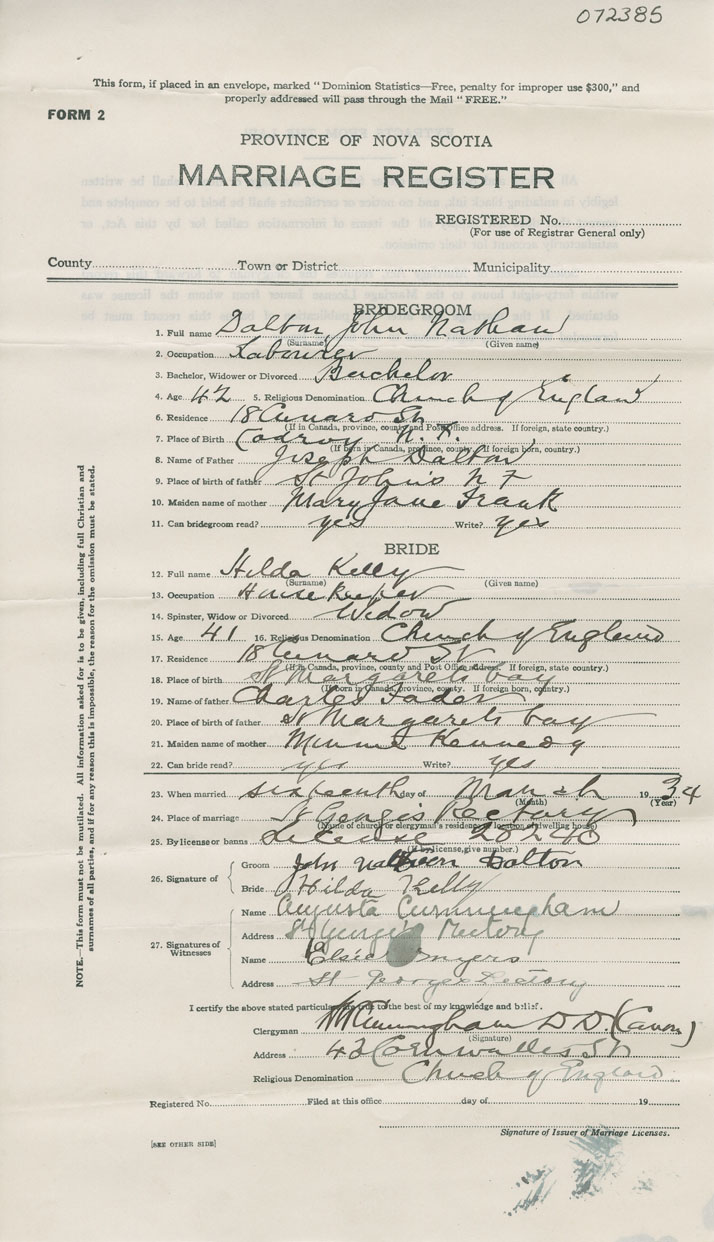 072385
This form, if placed in an envelope, marked "Dominion Statistics—Free, penalty for improper use $300," and
properly addressed will pass through the Mail "FREE."
FORM 2
PROVINCE OF NOVA SCOTIA
MARRIAGE REGISTER
REGISTERED No.
(For use of Registrar General only)
County Town or District Municipality
BRIDEGROOM
1. Full name Dalton, John Nathan
(Surname) (Given name)
2. Occupation Labourer
3. Bachelor, Widower or Divorced Bachelor
4. Age 42 5. Religious Denomination Church of England
6. Residence 18 Cunard St
(If in Canada, province, county and Post Office address. If foreign, state country.)
7. Place of Birth Codroy N.F.
(If born in Canada, province, county. If foreign born, country.)
8. Name of Father Joseph Dalton
9. Place of birth of father St John's N F
10. Maiden name of mother Mary Jane Frank
11. Can bridegroom read? yes Write? yes
BRIDE
12. Full name Hilda Kelly
(Surname) (Given name)
13. Occupation House Keeper
14. Spinster, Widow or Divorced Widow
15. Age 41 16. Religious Denomination Church of England
17. Residence 18 Cunard St
(If in Canada, province, county and Post Office address. If foreign, state country.)
18. Place of birth St Margarets bay
(If born in Canada, province, county. If foreign born, country.)
19. Name of father Charles Fader
20. Place of birth of father St Margarets bay
21. Maiden name of mother Minnie Kennedy
22. Can bride read? yes Write? yes
23. When married sixteenth day of March 1934
(Month) (Year)
24. Place of marriage St Georges Rectory
(Name of church or clergyman's residence or location of dwelling house)
25. By license or banns License 20240
(If by license, give number.)
26. Signature of
Groom John Dalton
Bride Hilda Kelly
27. Signatures of Witnesses
Name Augusta Cunningham
Address St George's Rectory
Name Elsie Myers
Address St Georges Rectory
I certify the above stated particulars are true to the best of my knowledge and belief.
Clergyman Cunningham D D. (Canon)
(Signature)
Address 42 Cornwallis St
Religious Denomination Church of England
Registered No. Filed at this office day of 19
Signature of Issuer of Marriage Licenses.
[SEE OTHER SIDE]
NOTE.—This form must not be mutilated. All information asked for is to be given, including full Christian and
surnames of all parties, and if for any reason this is impossible, the reason for the omission must be stated.